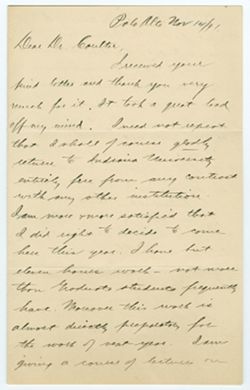 Palo Alto Nov 14/91
Dear Dr. Coulter,
I received your
kind letter and thank you very
much for it. It took a great load
off my mind. I need not repeat
that I shall of course gladly
return to Indiana University
entirely free from any contract
with any other institution.
I am more & more satisfied that
I did right to decide to come
here this year. I have but
eleven hours work – not more
than Graduate students frequently
have. Moreover this work is
almost directly preparatory for
the work of next year. I am
giving a course of lectures on